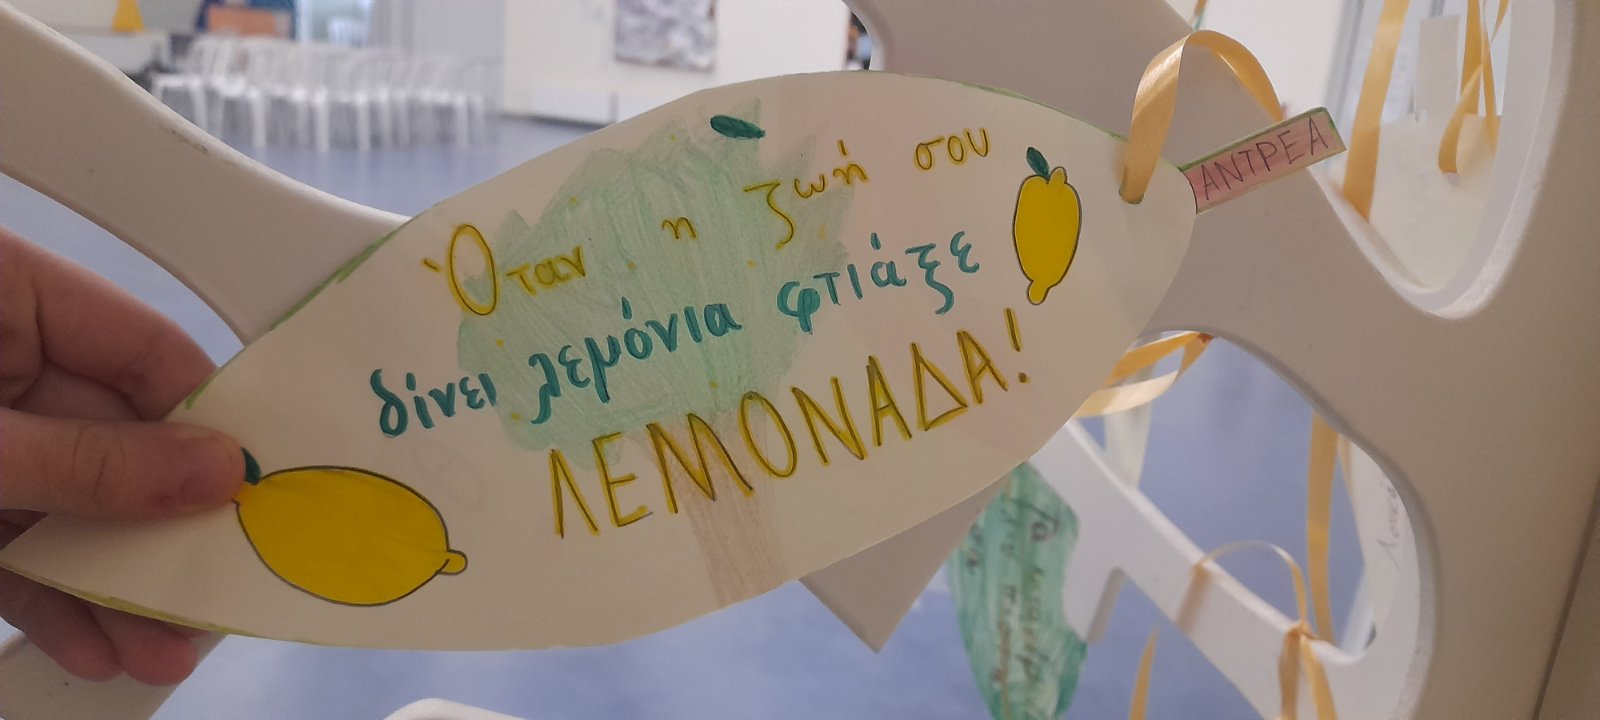 Όταν η ζωή σου
δίνει λεμόνια φτιάξε
ΛΕΜΟΝΑΔΑ!
ΑΝΤΡΕΑ